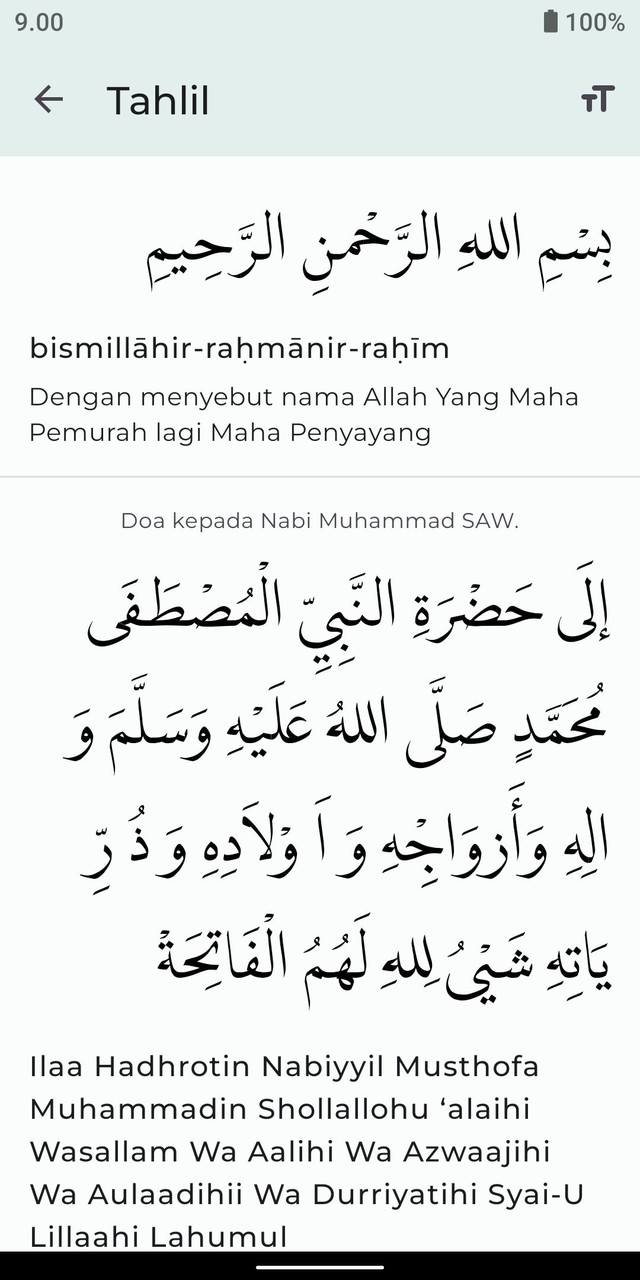 9.00
100%
Tahlil
بِسْمِ اللهِ الرَّحْمنِ الرَّحِيمِ
bismillāhir-raḥmānir-raḥīm
Dengan menyebut nama Allah Yang Maha
Pemurah lagi Maha Penyayang
Doa kepada Nabi Muhammad SAW.
إِلَى حَضْرَةِ النَّبِيِّ الْمُصْطَفَى
مُحَمَّدٍ صَلَّى اللهُ عَلَيْهِ وَسَلَّمَ وَ
الِهِ وَأَزوَاجْهِ وَ اَ وْلاَدِهِ وَ ذُ رِّ
يَاتِهِ شَيْئُ لِلهِ لَهُمُ الْفَاتِحَةْ
Ilaa Hadhrotin Nabiyyil Musthofa
Muhammadin Shollallohu ‘alaihi
Wasallam Wa Aalihi Wa Azwaajihi
Wa Aulaadihii Wa Durriyatihi Syai-U
Lillaahi Lahumul